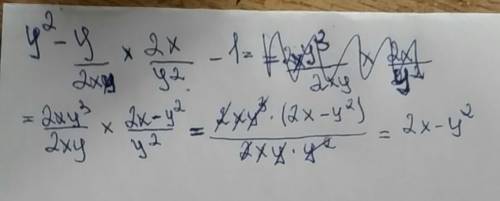 y² - y/2xy × 2x/y² - 1 =
= 2xy³/2xy × 2x-y²/y² = 2xy³·(2x-y²)/2xy·y² = 2x-y²